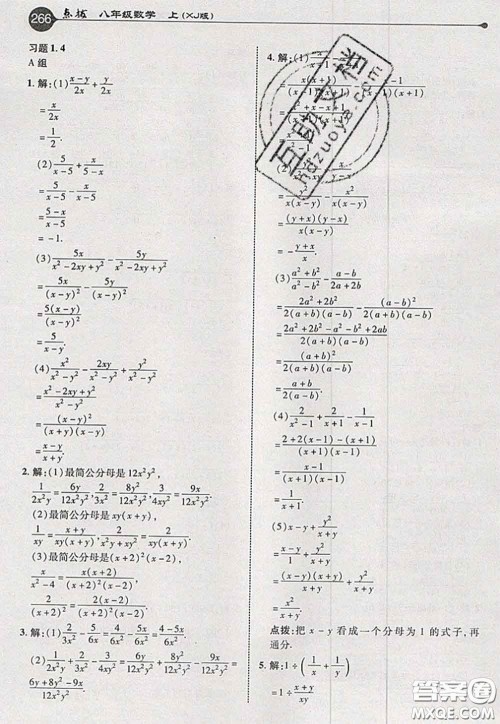 266 点拨 八年级数学 上(XJ版)
习题1.4
A组
1.解:(1)\frac{x-y}{2x}+\frac{y}{2x}
=\frac{x}{2x}
=\frac{1}{2}.
(2)\frac{5}{x-5}+\frac{x}{5-x}
=\frac{5}{x-5}-\frac{x}{x-5}
=\frac{5-x}{x-5}
=-1.
(3)\frac{5x}{x²-2xy+y²}-\frac{5y}{x²-2xy+y²}
=\frac{5x}{(x-y)²}-\frac{5y}{(x-y)²}
=\frac{5(x-y)}{(x-y)²}
=\frac{5}{x-y}.
(4)\frac{x²}{x²-y²}-\frac{2xy}{x²-y²}+\frac{y²}{x²-y²}
=\frac{x²-2xy+y²}{x²-y²}
=\frac{(x-y)²}{(x+y)(x-y)}
=\frac{x-y}{x+y}.
2.解:(1)最简公分母是12x²y²,
\frac{1}{2x²y}=\frac{6y}{12x²y²},\frac{2}{3x²}=\frac{8y²}{12x²y²},\frac{3}{4xy²}=\frac{9x}{12x²y²}.
(2)最简公分母是xy(x+y),
\frac{1}{xy}=\frac{x+y}{xy(x+y)},\frac{1}{x²y+xy²}=\frac{1}{xy(x+y)}.
(3)最简公分母是(x+2)(x-2),
\frac{x}{x²-4}=\frac{x}{(x+2)(x-2)},\frac{1}{x+2}=
\frac{x-2}{(x+2)(x-2)}.
3.解:(1)\frac{2}{3x²}-\frac{5}{6x}=\frac{4}{6x²}-\frac{5x}{6x²}=\frac{4-5x}{6x²}.
(2)\frac{1}{2x²y}+\frac{2}{3x²}-\frac{3}{4xy²}=\frac{6y}{12x²y²}+\frac{8y²}{12x²y²}-\frac{9x}{12x²y²}=
\frac{6y+8y²-9x}{12x²y²}.
4.解:(1)
=\frac{x²}{x(x+1)}
=\frac{x²+x+1}{x(x+1)}.
=\frac{y²}{x(x-y)}-\frac{x²}{x(x-y)}
=\frac{(y+x)(y-x)}{x(x-y)}
=-\frac{y+x}{x}.
(3)\frac{a²+b²}{a²-b²}-\frac{a-b}{2a+2b}
=\frac{2a²+2b²}{2(a+b)(a-b)}-\frac{(a-b)²}{2(a+b)(a-b)}
=\frac{2a²+2b²-a²+2ab-b²}{2(a+b)(a-b)}
=\frac{(a+b)²}{2(a+b)(a-b)}
=\frac{a+b}{2(a-b)}.
(4)\frac{2}{x²-1}+\frac{2}{x+1}-\frac{1}{x-1}
=\frac{2+2(x-1)-(x+1)}{(x+1)(x-1)}
=\frac{x-1}{(x+1)(x-1)}
=\frac{1}{x+1}.
(5)x-y+\frac{y²}{x+y}
=\frac{x-y}{1}+\frac{y²}{x+y}
=\frac{(x+y)(x-y)}{x+y}+\frac{y²}{x+y}
=\frac{x²}{x+y}.
点拨:把x-y看成一个分母为1的式子,再
通分.
5.解:1÷(\frac{1}{x}+\frac{1}{y})
=1÷\frac{x+y}{xy}
互助文楼
hdzuoye.com
答案圈
MXQE.COM